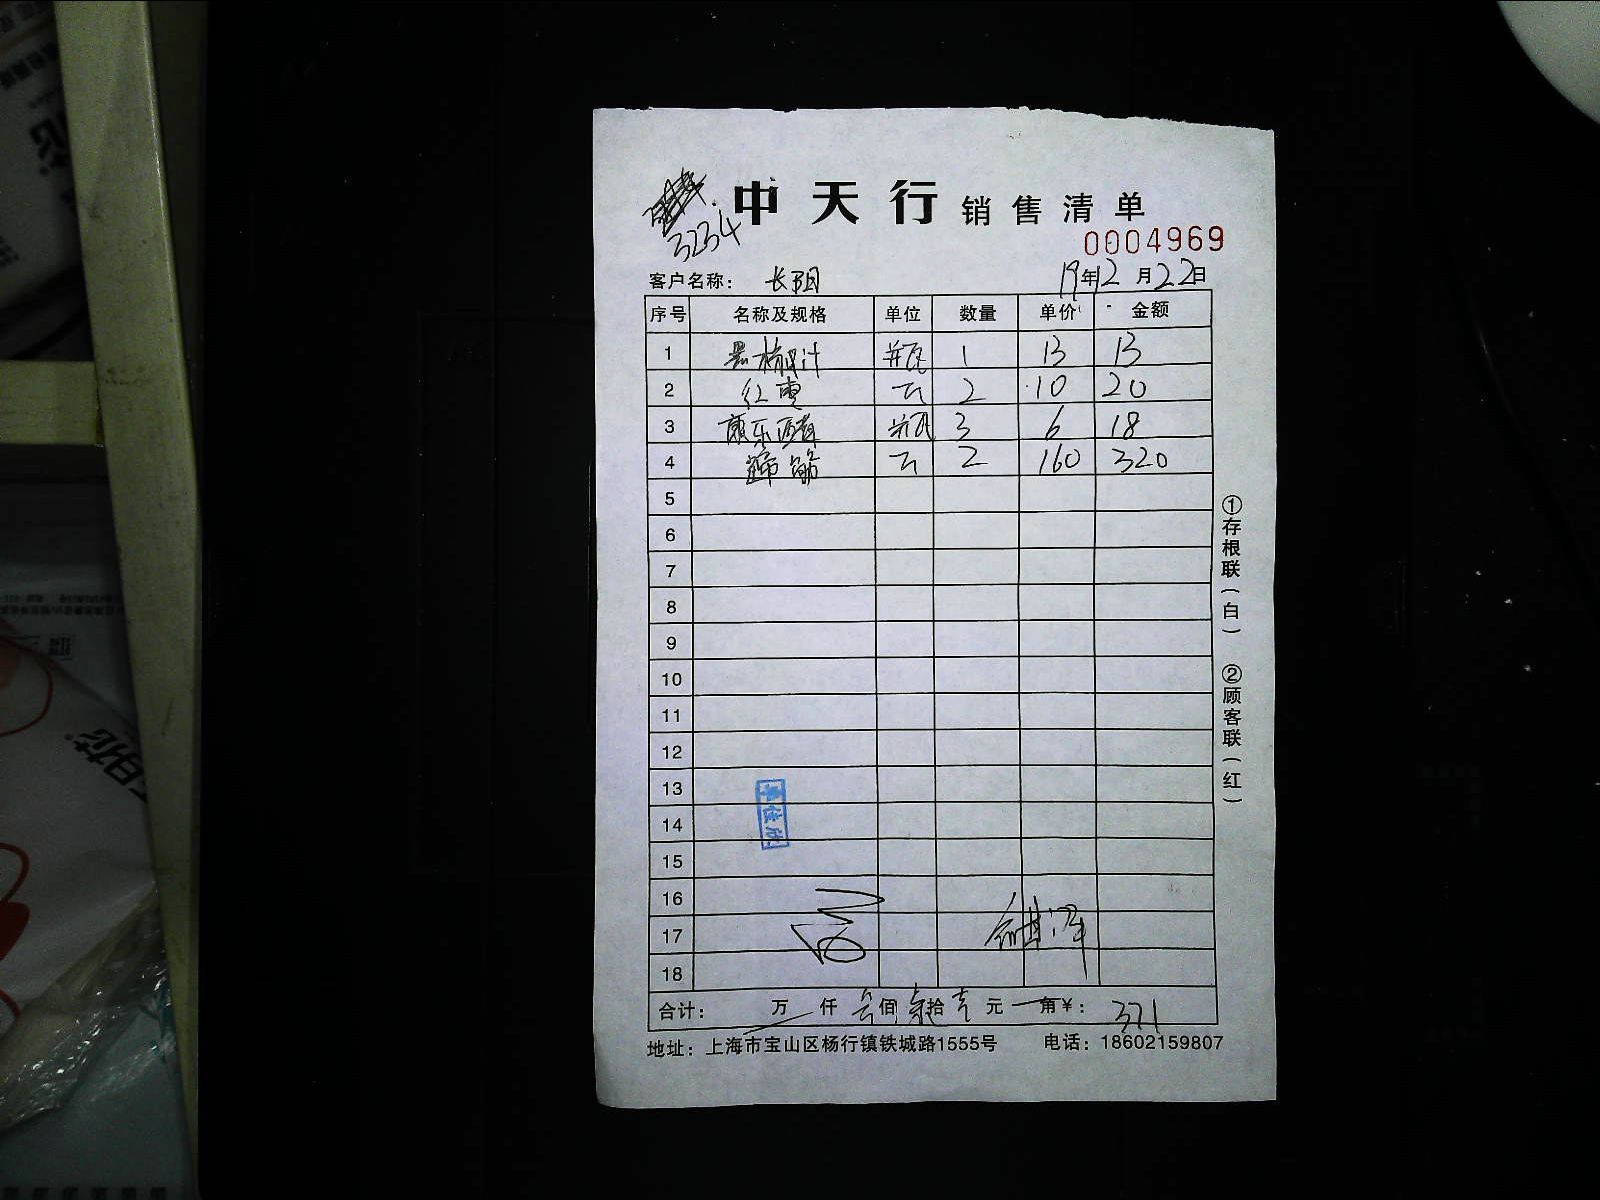 3234
中天行 销售清单
0004969
客户名称： 长阳 19年12月22日
序号 名称及规格 单位 数量 单价 金额
1 瓶 1 13 13
2 红枣 2 10 20
3 瓶 3 6 18
4 蹄筋 2 160 320
5
6
7
8
9
10
11
12
13
14
15
16
17
18
合计： 万 仟 叁佰 柒拾 壹元 角¥： 371
地址：上海市宝山区杨行镇铁城路1555号 电话：18602159807
①存根联（白） ②顾客联（红）